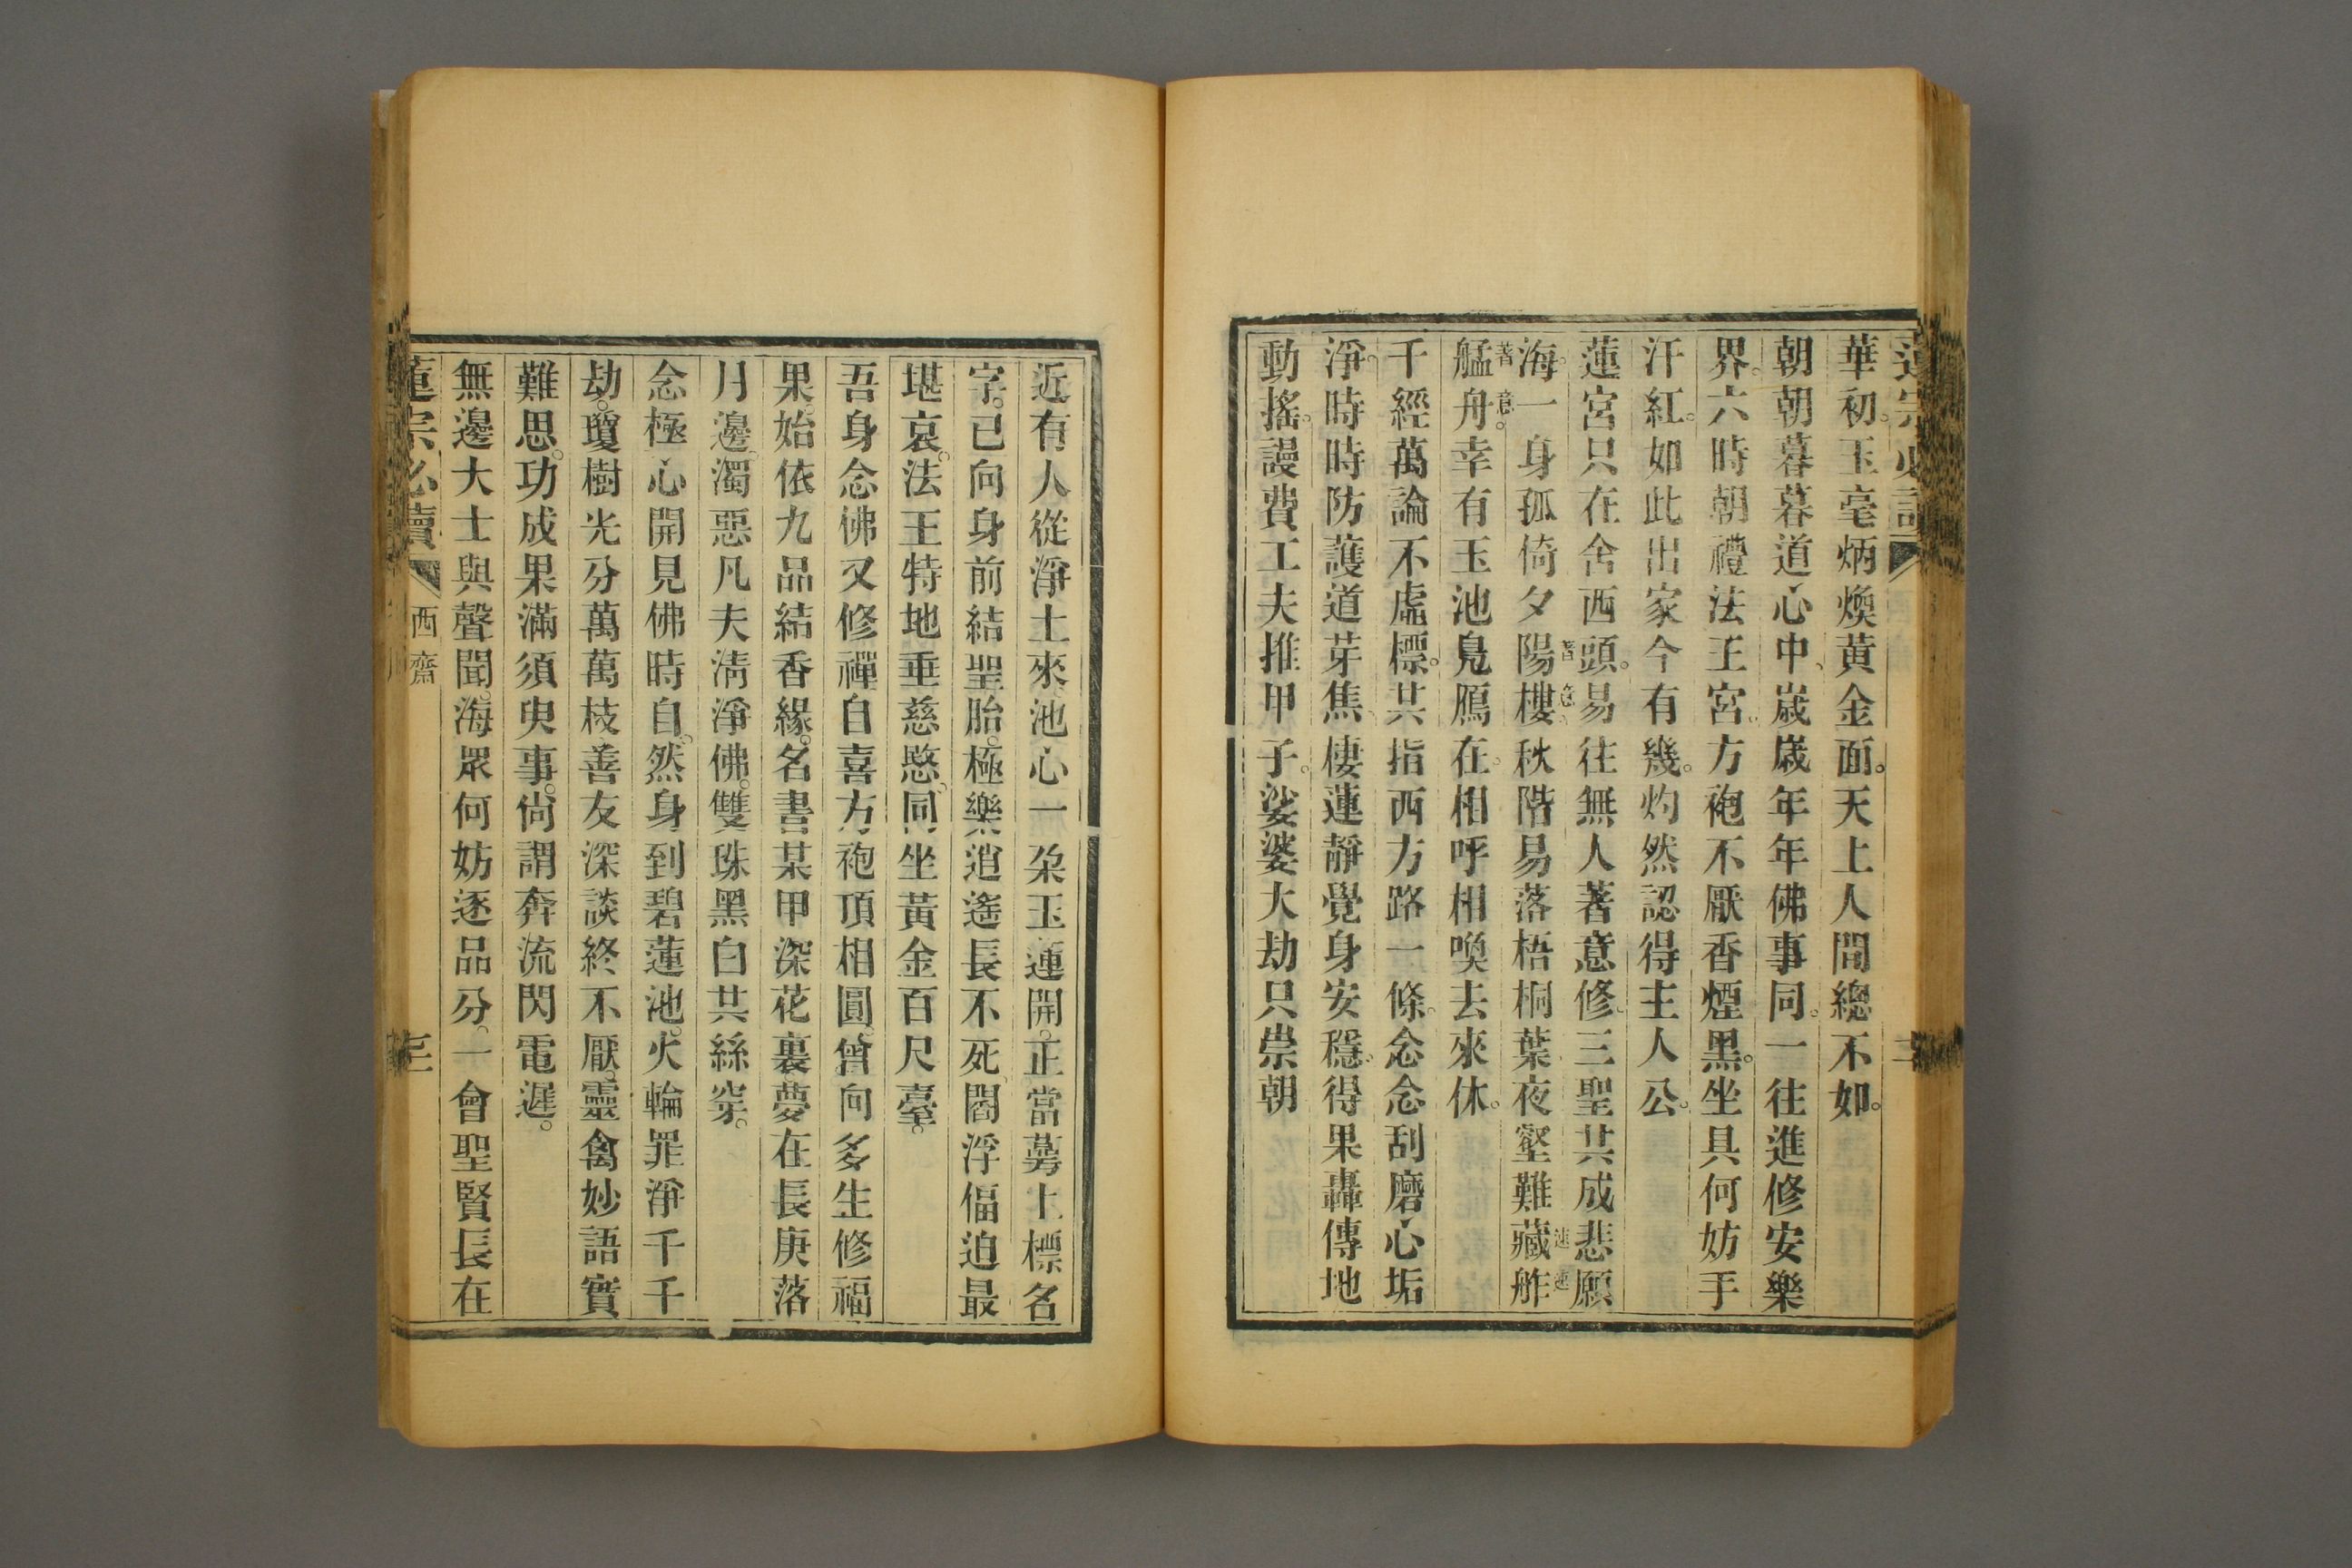 蓮宗必讀
二
華初。玉毫炳煥黃金面。天上人間總不如。
朝朝暮暮道心中、歲歲年年佛事同。一往進修安樂
界。六時朝禮法王宮。方袍不厭香煙黑。坐具何妨手
汗紅。如此出家今有幾。灼然認得主人公。
蓮宮只在舍西頭。易往無人著意修。三聖共成悲願
海。一身孤倚夕陽樓。秋階易落梧桐葉、夜壑難藏舴
艋舟。幸有玉池鳧鴈在。相呼相喚去來休。
千經萬論不虛標。共指西方路一條。念念刮磨心垢
淨。時時防護道芽焦。棲蓮靜覺身安穩。得果轟傳地
動搖。謾費工夫推甲子。娑婆大劫只崇朝
近有人從淨土來。池心一朶玉蓮開。正當蕚上標名
字。已向身前結聖胎。極樂逍遙長不死。閻浮偪迫最
堪哀。法王特地垂慈愍。同坐黃金百尺臺。
吾身念佛又修禪。自喜方袍頂相圓。曾向多生修福
果。始依九品結香緣。名書某甲深花裏。夢在長庚落
月邊。濁惡凡夫清淨佛。雙珠黑白共絲穿。
念極心開見佛時。自然身到碧蓮池。火輪罪淨千千
劫。瓊樹光分萬萬枝。善友深談終不厭。靈禽妙語實
難思。功成果滿須臾事。尙謂奔流閃電遲。
無邊大士與聲聞。海眾何妨逐品分。一會聖賢長在
蓮宗必讀
西齋
三